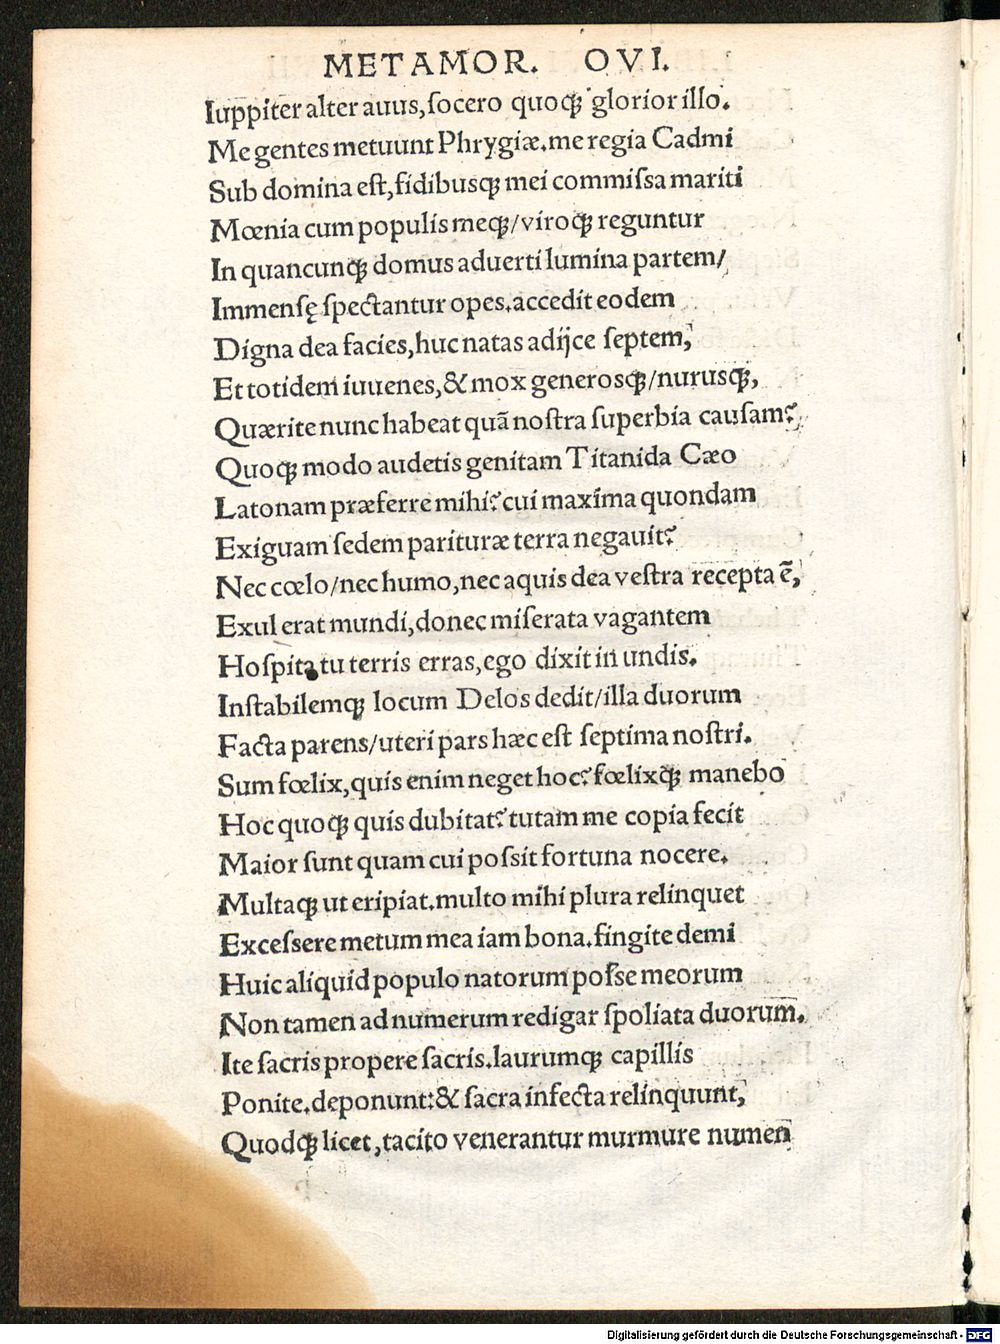 METAMOR. OVI.
Iuppiter alter auus, ſocero quoqꝫ glorior illo.
Me gentes metuunt Phrygiæ. me regia Cadmi
Sub domina eſt, fidibusqꝫ mei commiſſa mariti
Mœnia cum populis meqꝫ/viroqꝫ reguntur
In quancunqꝫ domus aduerti lumina partem/
Immenſę ſpectantur opes. accedit eodem
Digna dea facies, huc natas adijce ſeptem,
Et totidem iuuenes, & mox generosqꝫ/nurusqꝫ,
Quærite nunc habeat quã noſtra ſuperbia cauſam?
Quoqꝫ modo audetis genitam Titanida Cæo
Latonam præferre mihi? cui maxima quondam
Exiguam ſedem parituræ terra negauit?
Nec cœlo/nec humo, nec aquis dea veſtra recepta ẽ,
Exul erat mundi, donec miſerata vagantem
Hoſpita tu terris erras, ego dixit in undis.
Inſtabilemqꝫ locum Delos dedit/illa duorum
Facta parens/uteri pars hæc eſt ſeptima noſtri.
Sum fœlix, quis enim neget hoc? fœlixqꝫ manebo
Hoc quoqꝫ quis dubitat? tutam me copia fecit
Maior ſunt quam cui poſsit fortuna nocere.
Multaqꝫ ut eripiat. multo mihi plura relinquet
Exceſsere metum mea iam bona. fingite demi
Huic aliquid populo natorum poſſe meorum
Non tamen ad numerum redigar ſpoliata duorum.
Ite ſacris propere ſacris. laurumqꝫ capillis
Ponite. deponunt: & ſacra infecta relinquunt,
Quodqꝫ licet, tacito venerantur murmure numen
Digitalisierung gefördert durch die Deutsche Forschungsgemeinschaft - DFG